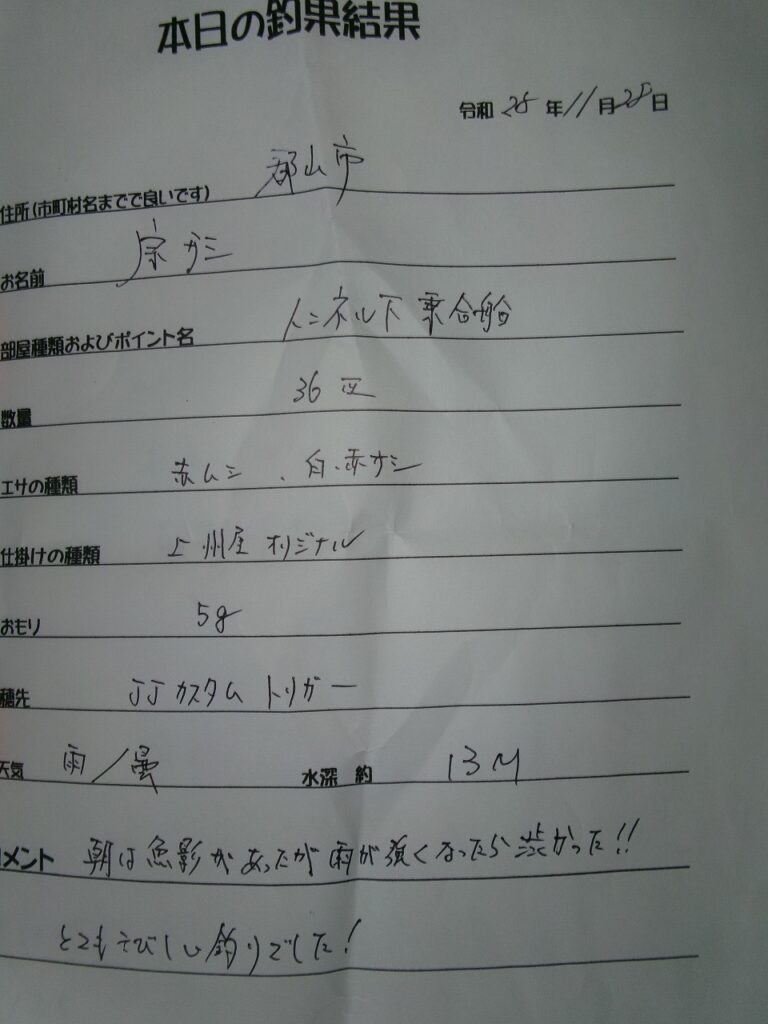 本日の釣果結果
令和 25 年 11 月 28 日
住所(市町村名までで良いです) 郡山市
お名前 宗かミ
部屋種類およびポイント名 トンネル下 乗合船
数量 36 匹
エサの種類 赤ムシ、白・赤サシ
仕掛けの種類 上州屋 オリジナル
おもり 5g
穂先 JJカスタム トリガー
天気 雨/曇 水深 約 13M
メント 朝は魚影があったが雨が強くなったら渋かった!!
とてもさびしい釣りでした!